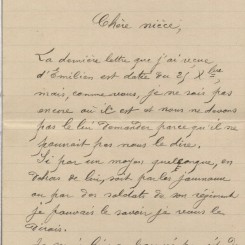 Chère nièce,
La dernière lettre que j'ai reçue
d'Emilien est datée du 25 Xbre
mais, comme vous, je ne sais pas
encore où il est et nous ne devons
pas le lui demander parce qu'il ne
pourrait pas nous le dire.
Si par un moyen quelconque, en
dehors de lui, soit par les journaux
ou par des soldats de son régiment
je pouvais le savoir je vous le
dirais.